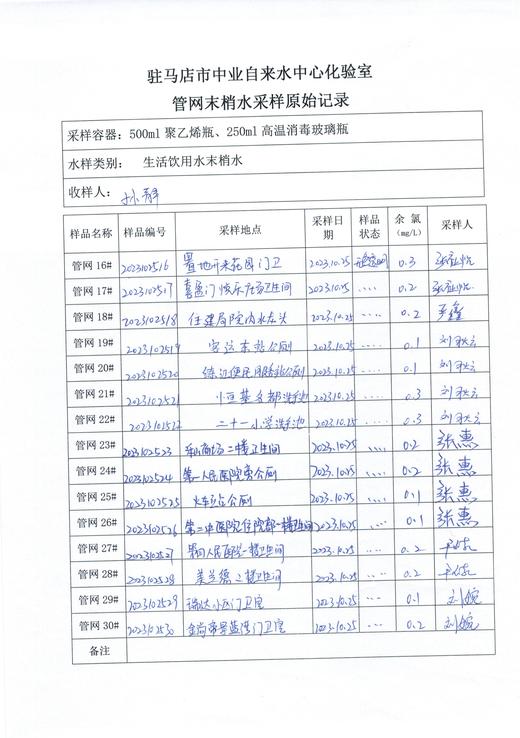 驻马店市中业自来水中心化验室
管网末梢水采样原始记录
采样容器：500ml 聚乙烯瓶、250ml 高温消毒玻璃瓶
水样类别： 生活饮用水末梢水
收样人： 孙静
样品名称 样品编号 采样地点 采样日期 样品状态 余氯(mg/L) 采样人
管网 16# 2023102516 置地开来花园门卫 2023.10.25 0.3
管网 17# 2023102517 喜盈门快乐广场卫生间 2023.10.25 .... 0.2
管网 18# 2023102518 住建局院内水龙头 2023.10.25 .... 0.2
管网 19# 2023102519 客运东站公厕 2023.10.25 .... 0.1 刘
管网 20# 2023102520 便民服务站公厕 2023.10.25 .... 0.1 刘
管网 21# 2023102521 恒基名都洗手池 2023.10.25 .... 0.3 刘
管网 22# 2023102522 二十一小学洗手池 2023.10.25 .... 0.3 刘
管网 23# 2023102523 商场二楼卫生间 2023.10.25 .... 0.2 张惠
管网 24# 2023102524 第一人民医院旁公厕 2023.10.25 .... 0.2 张惠
管网 25# 2023102525 火车站公厕 2023.10.25 .... 0.1 张惠
管网 26# 2023102526 第二中医院住院部一楼卫生间 2023.10.25 .... 0.1 张惠
管网 27# 2023102527 人民医院一楼卫生间 2023.10.25 ... 0.2
管网 28# 2023102528 美兰德二楼卫生间 2023.10.25 ... 0.2
管网 29# 2023102529 瑞达小区门卫室 2023.10.25 ... 0.1 刘婉
管网 30# 2023102530 门卫室 2023.10.25 ... 0.2 刘婉
备注